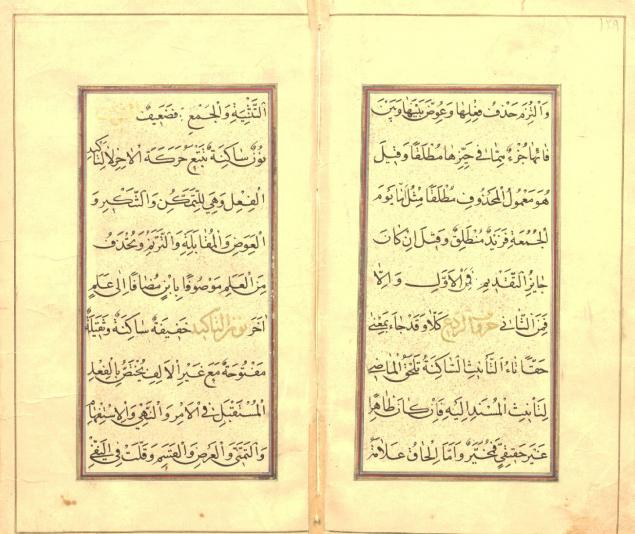 ١٢٩
وَالْتُزِمَ حَذْفُ فِعْلِهَا وَعُوِّضَ بَيْنَهَا وَبَيْنَ
فَائِهَا جُزْءٌ مِمَّا فِي حَيِّزِهَا مُطْلَقًا وَقِيلَ
هُوَ مَعْمُولُ الْمَحْذُوفِ مُطْلَقًا مِثْلُ أَمَّا يَوْمَ
الْجُمُعَةِ فَزَيْدٌ مُنْطَلِقٌ وَقِيلَ إِنْ كَانَ
جَائِزَ التَّقْدِيمِ فَمِنَ الْأَوَّلِ وَإِلَّا
فَمِنَ الثَّانِي حَرْفُ الرَّدْعِ كَلَّا وَقَدْ جَاءَ بِمَعْنَى
حَقًّا تَاءُ التَّأْنِيثِ السَّاكِنَةُ تَلْحَقُ الْمَاضِيَ
لِتَأْنِيثِ الْمُسْنَدِ إِلَيْهِ فَإِنْ كَانَ ظَاهِرًا
غَيْرَ حَقِيقِيٍّ فَمُخَيَّرٌ وَأَمَّا إِلْحَاقُ عَلَامَةِ
التَّثْنِيَةِ وَالْجَمْعِ فَضَعِيفٌ
نُونٌ سَاكِنَةٌ تَتْبَعُ حَرَكَةَ الْآخِرِ لَا لِتَأْكِيدِ
الْفِعْلِ وَهِيَ لِلتَّمَكُّنِ وَالتَّنْكِيرِ وَ
الْعِوَضِ وَالْمُقَابَلَةِ وَالتَّرَنُّمِ وَيُحْذَفُ
مِنَ الْعَلَمِ مَوْصُوفًا بِابْنٍ مُضَافًا إِلَى عَلَمٍ
آخَرَ نُونُ التَّأْكِيدِ خَفِيفَةٌ سَاكِنَةٌ وَثَقِيلَةٌ
مَفْتُوحَةٌ مَعَ غَيْرِ الْأَلِفِ يَخْتَصُّ بِالْفِعْلِ
الْمُسْتَقْبَلِ فِي الْأَمْرِ وَالنَّهْيِ وَالِاسْتِفْهَامِ
وَالتَّمَنِّي وَالْعَرْضِ وَالْقَسَمِ وَقَلَّتْ فِي النَّفْيِ